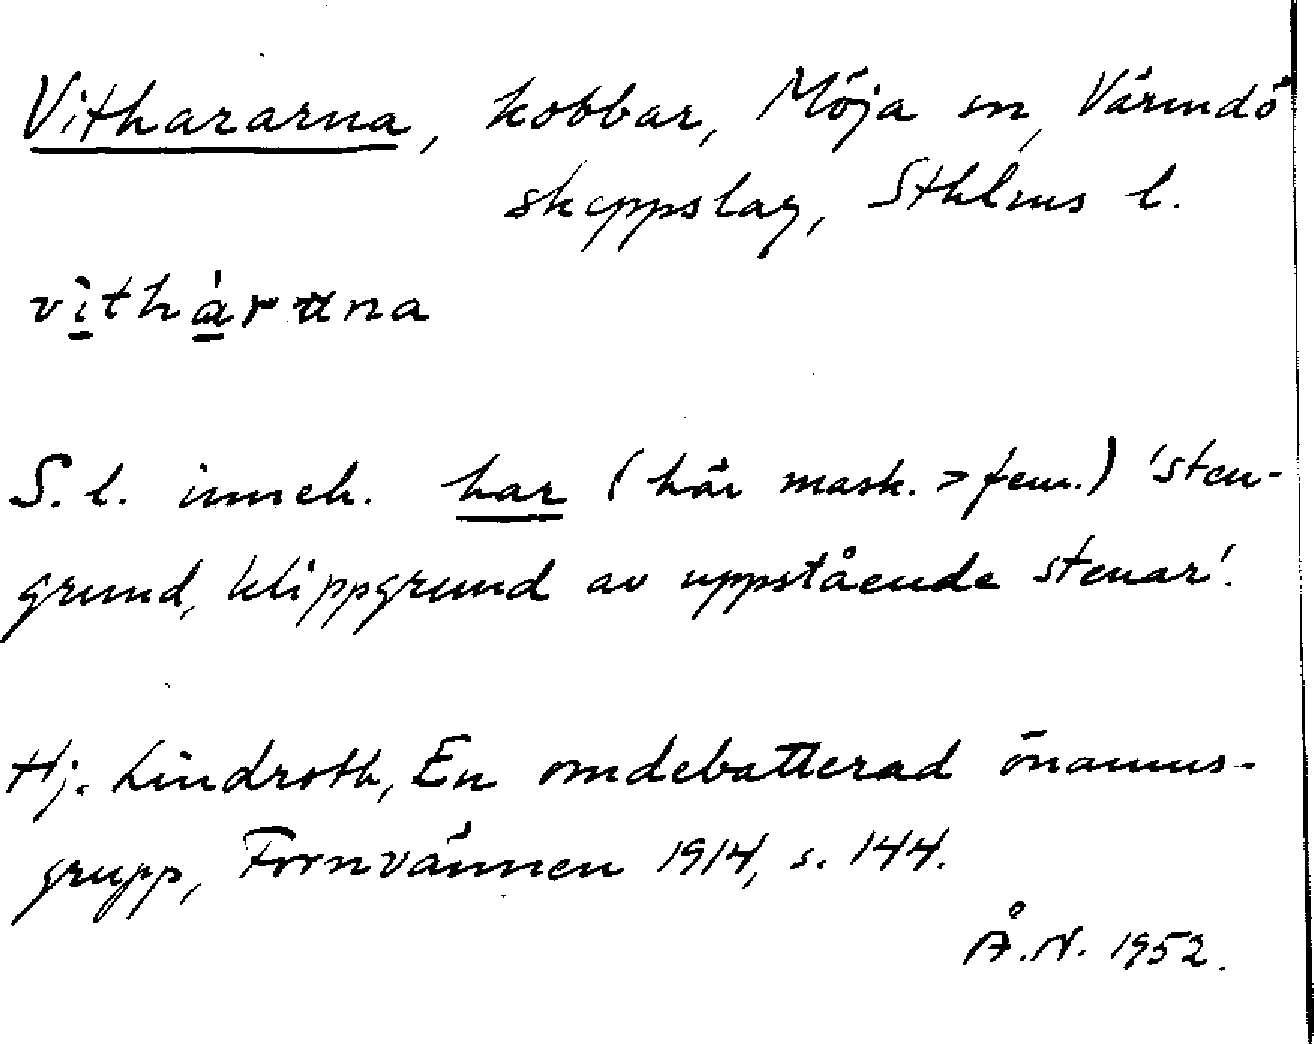 Vithararna, kobbar, Möja sn, Värmdö
skeppslag, Sthlms l.
vìthàrụna
S. l. inneh. har (här mask. > fem.) 'sten-
grund, klippgrund av uppstående stenar'.
Hj. Lindroth, En omdebatterad önamns-
grupp, Fornvännen 1914, s. 144.
Å.N. 1952.